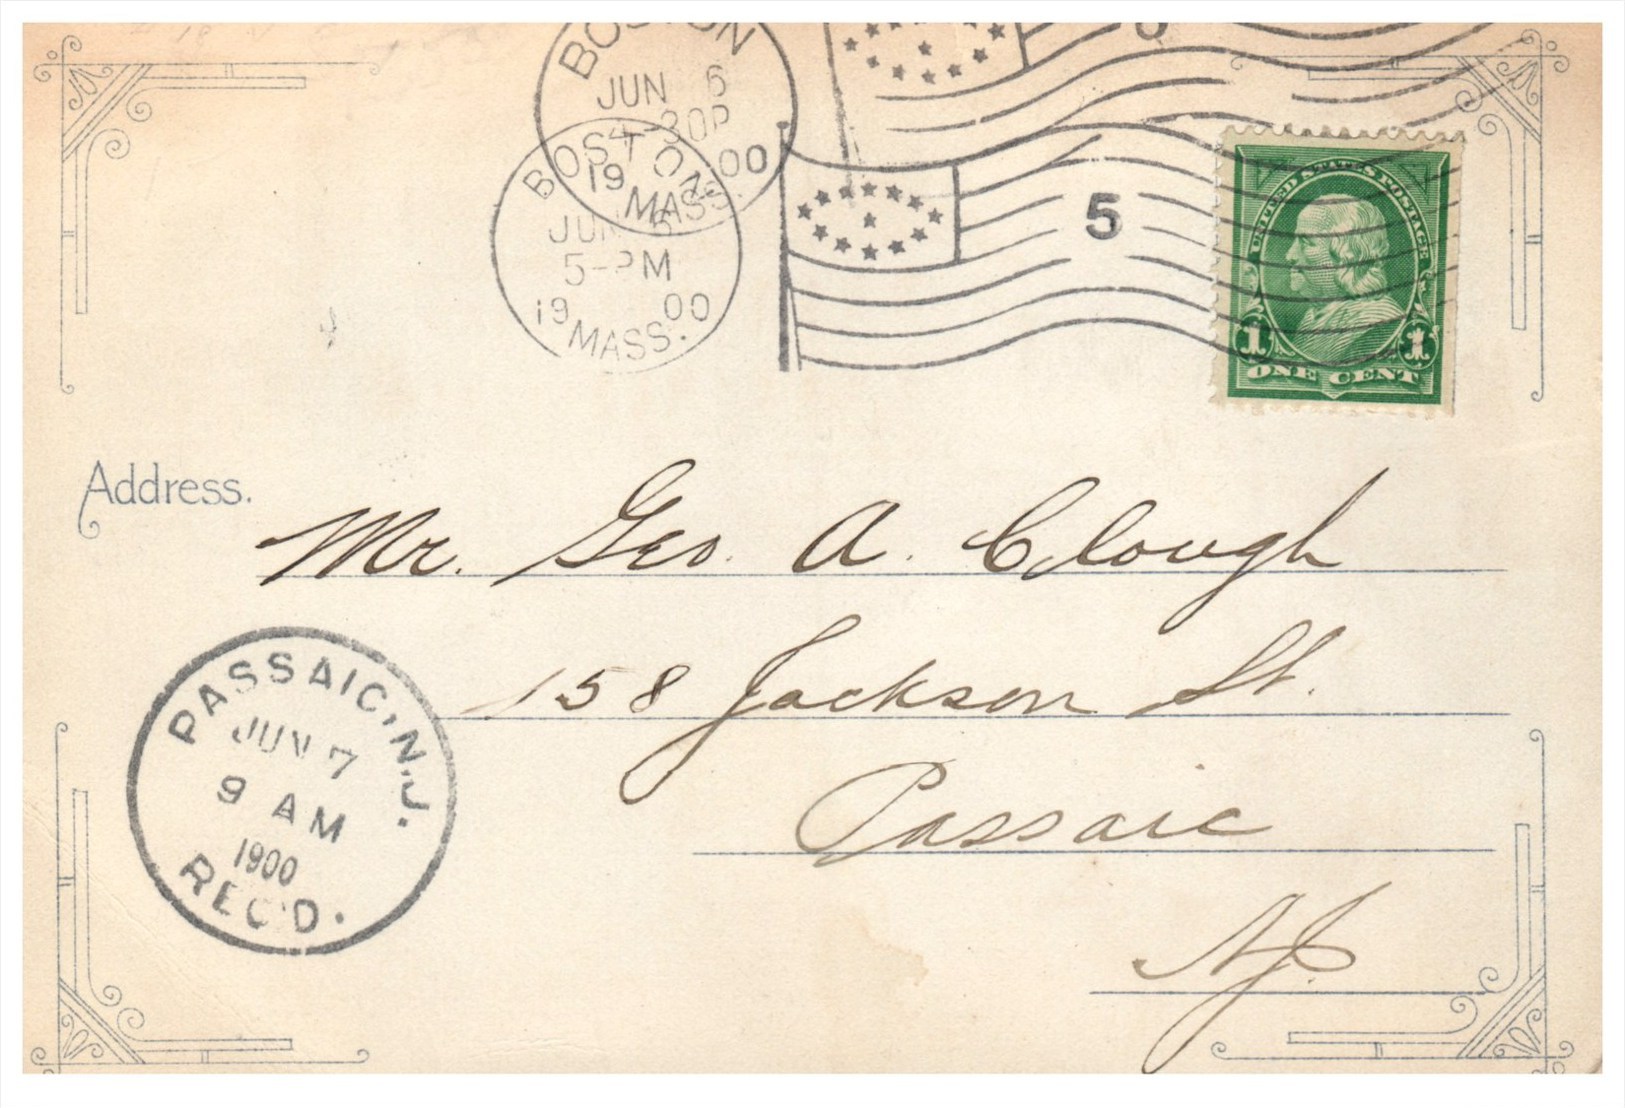 BOSTON
JUN 6
4-30P
19 00
MASS.
BOSTON
JUN 6
5-PM
19 00
MASS.
5
UNITED STATES POSTAGE
1 1
ONE CENT
Address.
Mr. Geo. A. Clough
158 Jackson St.
Passaic
N.J.
PASSAIC, N.J.
JUN 7
9 AM
1900
REC'D.